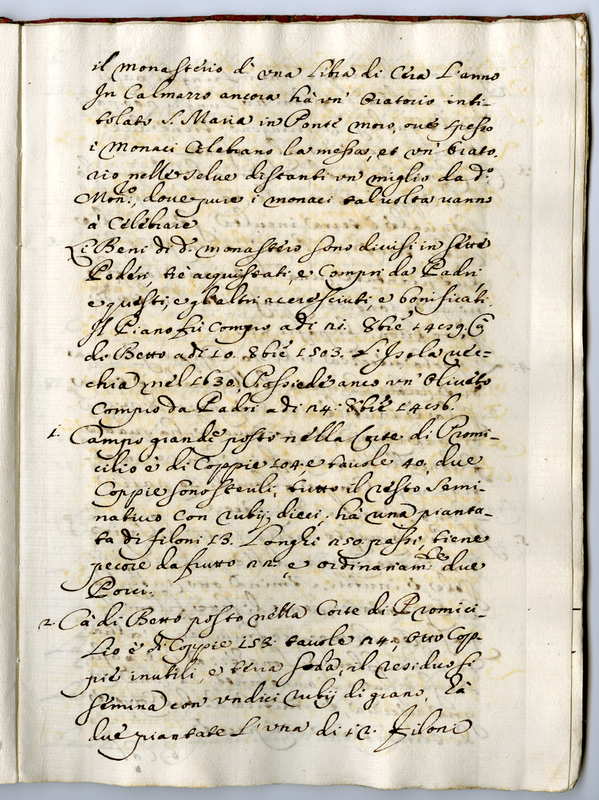 il monasterio d'una Libra di Cera L'anno
In Calmazzo ancora hà un' Oratorio inti-
tolato S. Maria in Ponte moro, oue spesso
i monaci Celebrano la messa, et un' Orato-
rio nelle selue distanti un' miglio da d.º
Mon.º, doue pure i monaci taluolta uanno
à Celebrare
I Beni di d.º monastero sono diuisi in sette
Poderi, tre acquistati, e Compri da Padri
e questi, e gl'altri accresciuti, e bonificati.
Il Piano fù Compro adi 21. 8bre
di Betto adi 10. 8bre 1503. L'Isola uec-
chia nel 1630. Possiede anco un' Oliueto
Compro da Padri adi 24. 8bre
1. Campo grande posto nella Corte di Promi-
cilio è di Coppie 104, e tauole 40, due
Coppie sono sterili, tutto il resto semi-
natiuo con rubij dieci, hà una pianta-
ta di filoni 13. Longhi 250 passi, tiene
pecore da frutto nr.º e ordinariam.te due
Porci.
2. Cà di Betto posto nella Corte di Promici-
lio è di Coppie 153. tauole 24, otto Cop-
pie inutili, e terra soda, il residuo si
semina con undici rubij di grano, hà
due piantate L'una di 12. Filoni